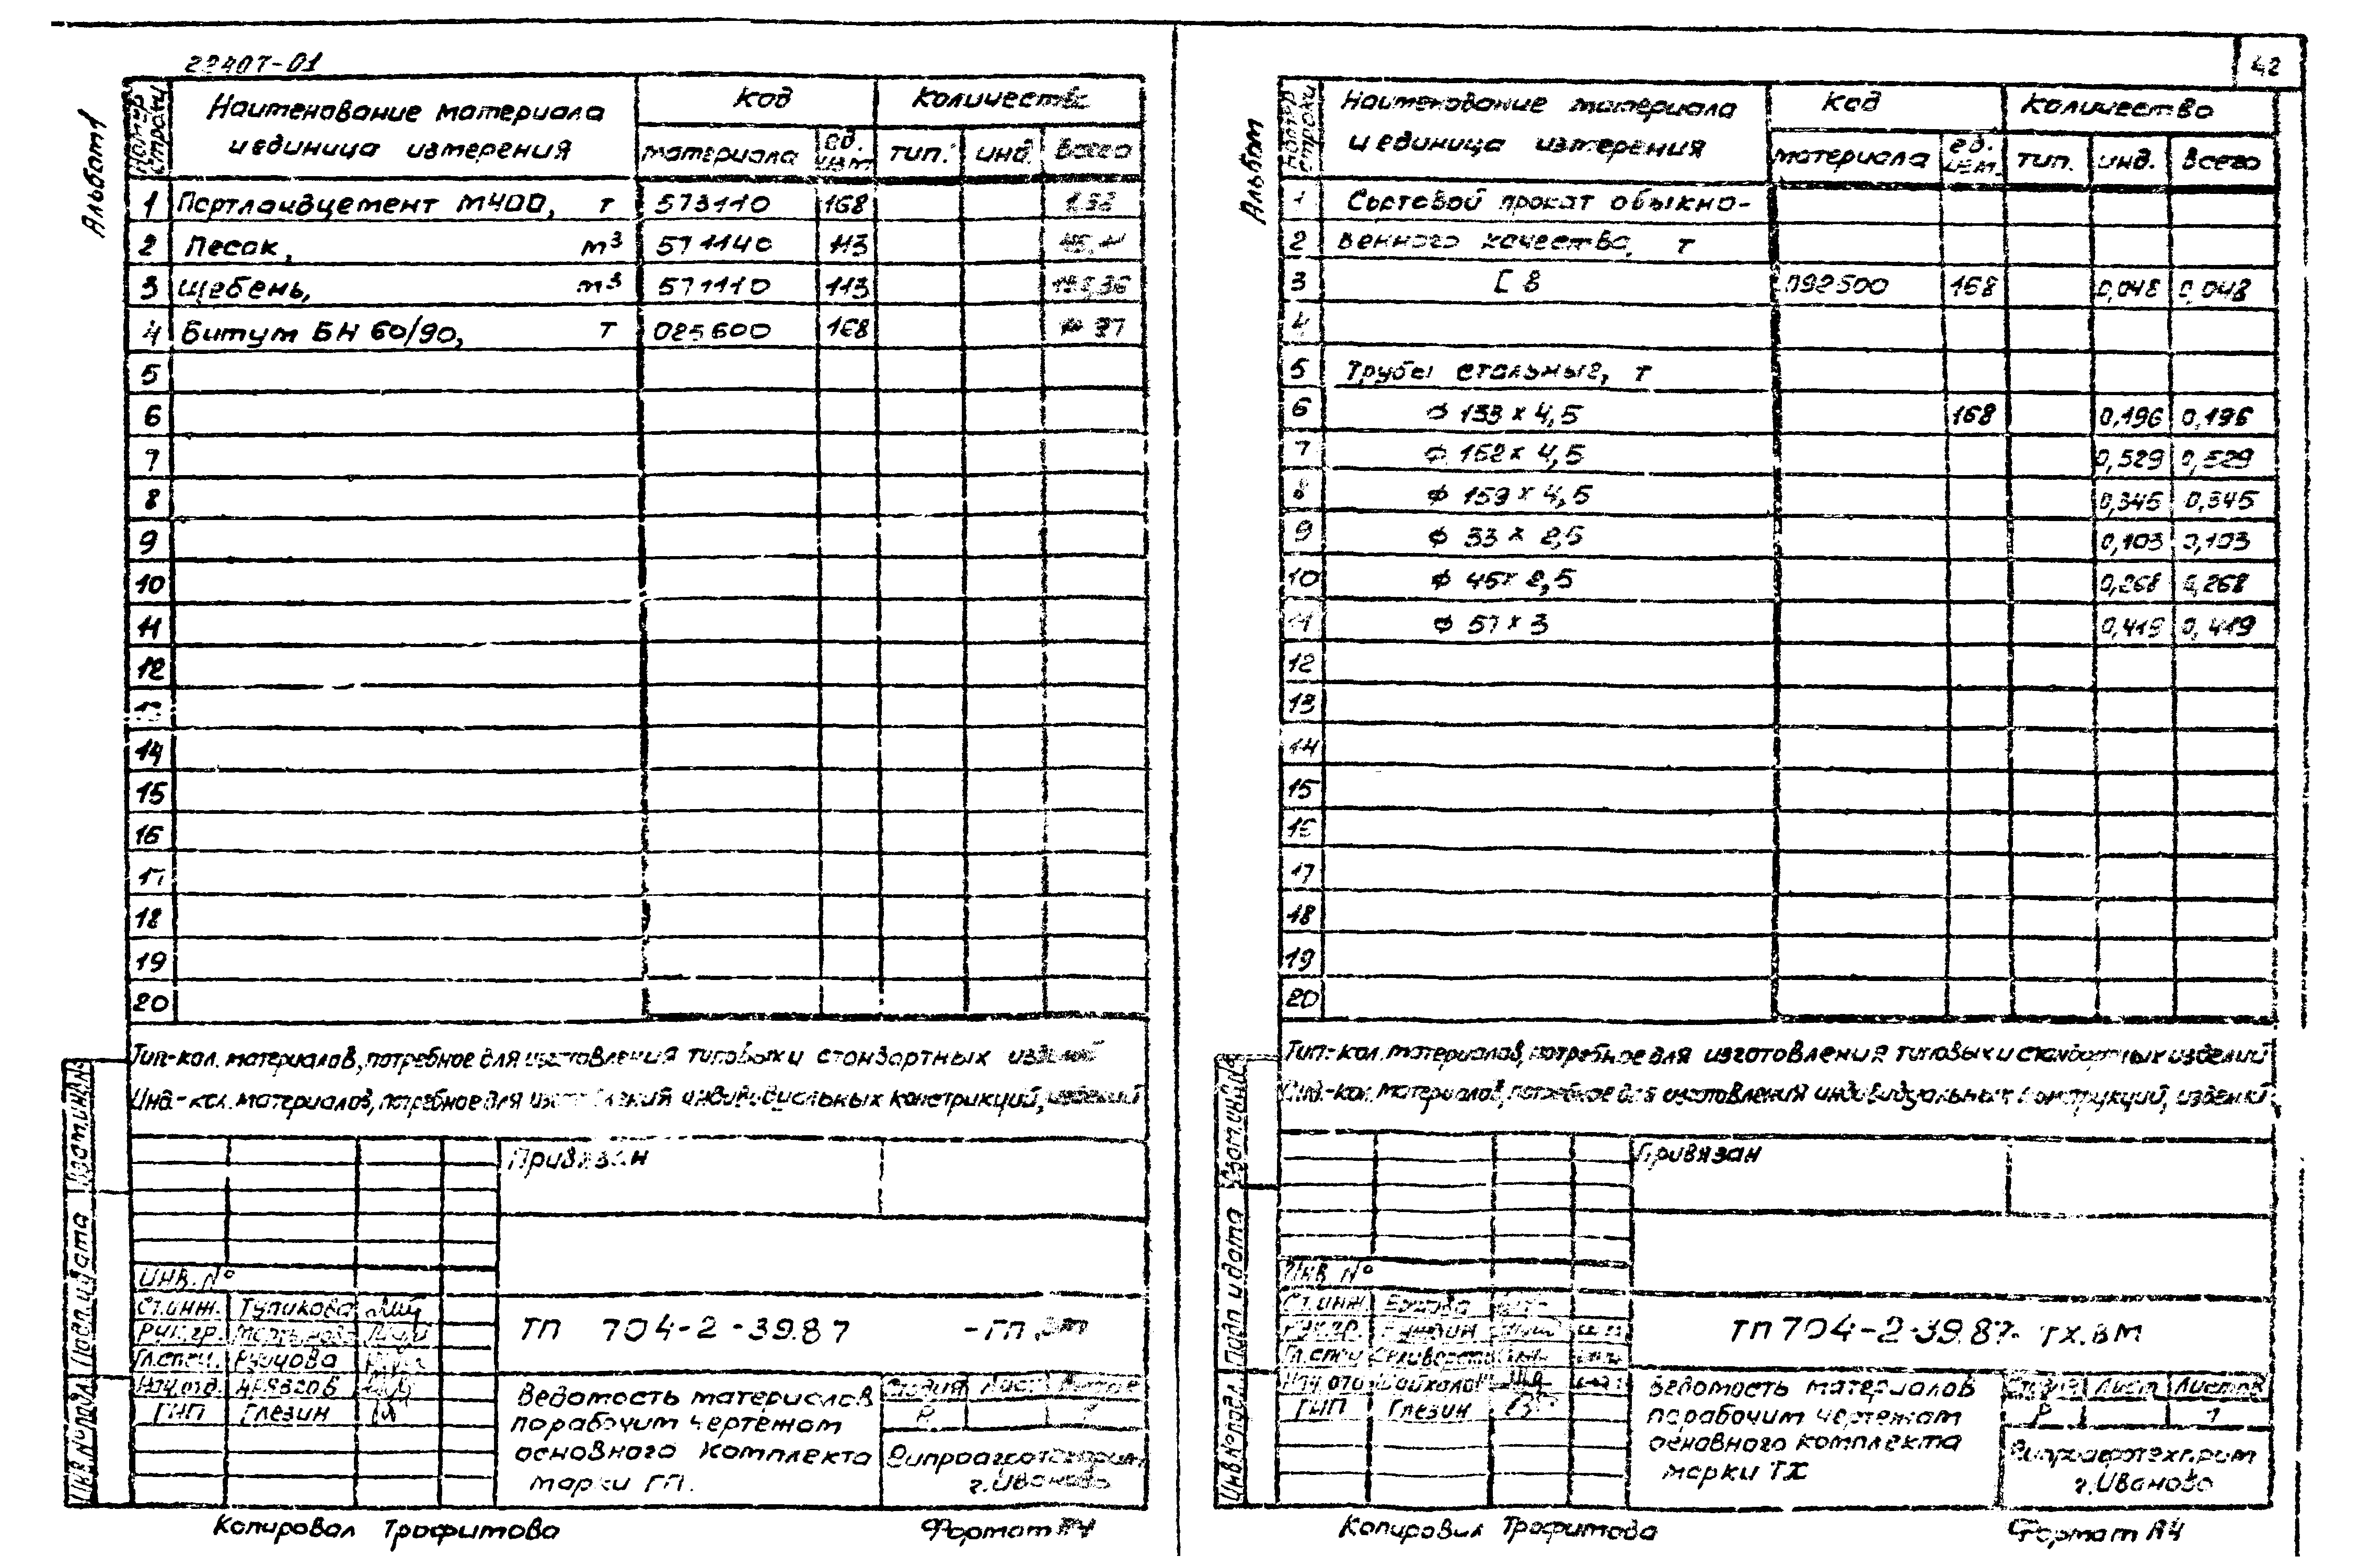 22407-01
Альбом 1
Номер строки
Наименование материала
и единица измерения
Код
Количество
материала
ед. изм.
тип.
инд.
Всего
1 Портландцемент М400, т 573110 168
2 Песок, м³ 571140 113
3 Щебень, м³ 571110 113
4 Битум БН 60/90, т 025600 168
5
6
7
8
9
10
11
12
13
14
15
16
17
18
19
20
Тип-кол. материалов, потребное для изготовления типовых и стандартных изделий
Инд.-кол. материалов, потребное для изготовления индивидуальных конструкций, изделий
Привязан
Инв. №
Ст.инж. Тупикова
Рук.гр.
Гл.спец.
Нач.отд.
ГИП Глезин
ТП 704-2-39.87 -ГП.ВМ
Ведомость материалов
по рабочим чертежам
основного комплекта
марки ГП.
Стадия Лист Листов
Р 1
г.Иваново
Взам.инв.№
Подп. и дата
Инв.№ подл.
Копировал Трофимова
Формат А4
42
Альбом
Номер строки
Наименование материала
и единица измерения
Код
Количество
материала
ед. изм.
тип.
инд.
Всего
1 Сортовой прокат обыкно-
2 венного качества, т
3 [ 8 092500 168 0,048 0,048
4
5 Трубы стальные, т
6 ф 133 х 4,5 168 0,196 0,196
7 ф 152 х 4,5 0,529 0,529
8 ф 159 х 4,5 0,345 0,345
9 ф 33 х 2,5 0,103 0,103
10 ф 45 х 2,5 0,268 0,268
11 ф 57 х 3 0,419 0,419
12
13
14
15
16
17
18
19
20
Тип.-кол. материалов, потребное для изготовления типовых и стандартных изделий
Инд.-кол. материалов, потребное для изготовления индивидуальных конструкций, изделий
Привязан
Инв №
Ст.инж.
Рук.гр.
Гл.спец
Нач.отд
ГИП Глезин
ТП 704-2-39.87- ТХ.ВМ
Ведомость материалов
по рабочим чертежам
основного комплекта
марки ТХ
Стадия Лист Листов
Р 1
г.Иваново
Взам.инв.№
Подп и дата
Инв.№ подл
Копировал Трофимова
Формат А4